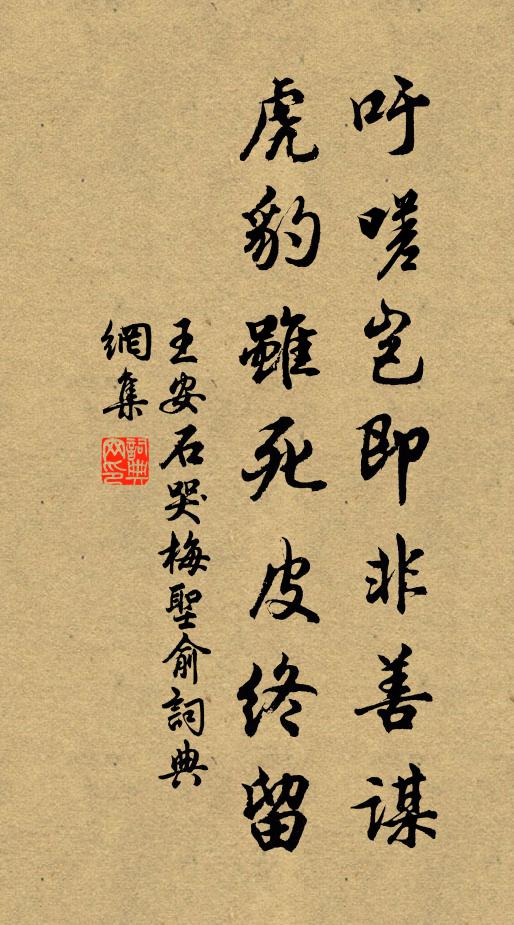 吁嗟豈即非善謀
虎豹雖死皮終留
王安石哭梅聖俞詞典
網集
詞典網印